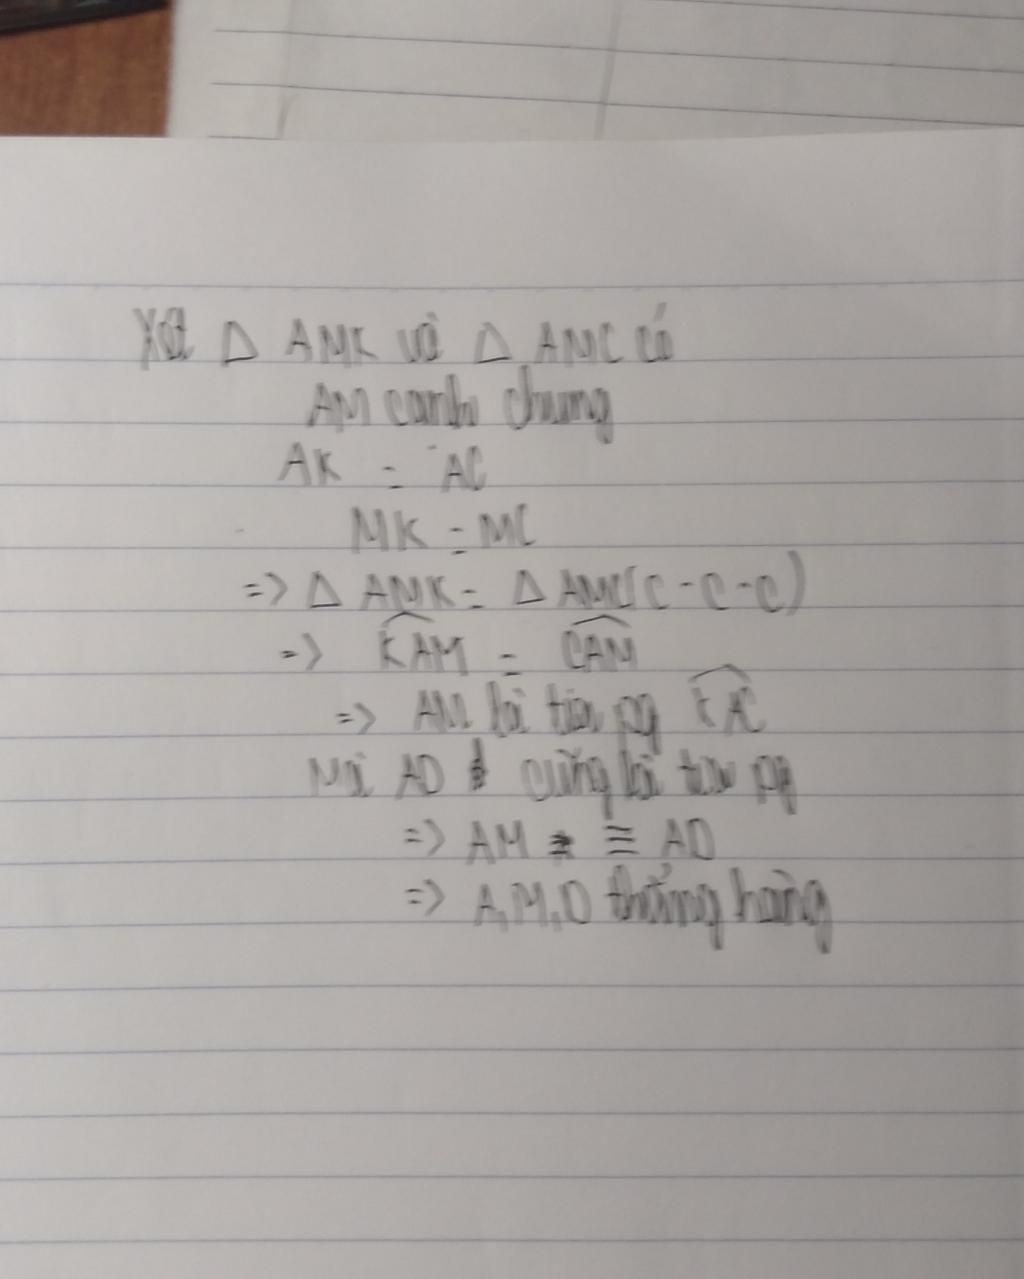 Xét Δ AMK và Δ AMC có
AM cạnh chung
AK = AC
MK = MC
=> Δ AMK = Δ AMC (c-c-c)
=> \widehat{KAM} = \widehat{CAM}
=> AM là tia pg \widehat{KAC}
Mà AD cũng là tia pg
=> AM ≡ AD
=> A, M, D thẳng hàng